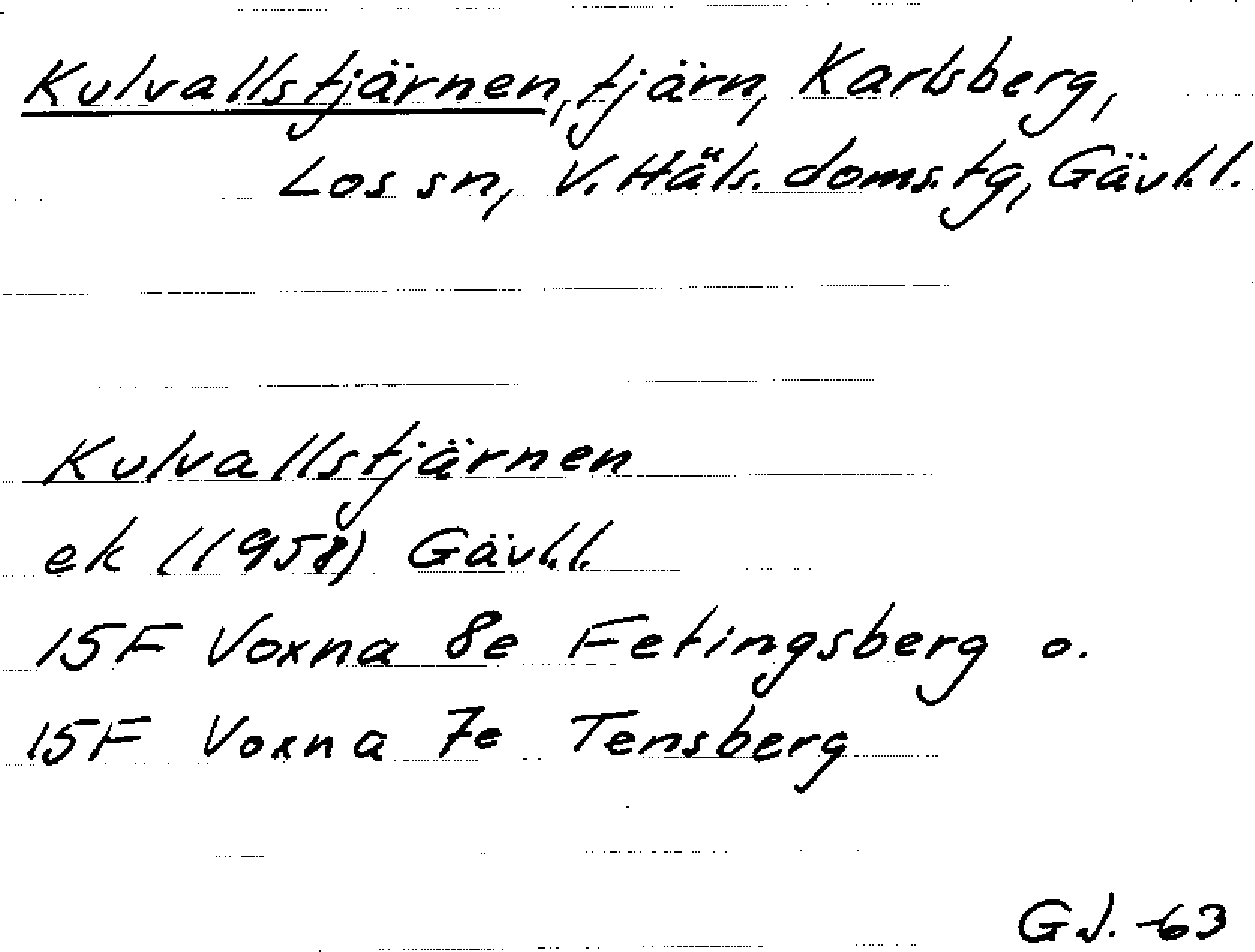 Kulvallstjärnen, tjärn, Karlsberg,
Los sn, V. Häls. doms.tg, Gävl.l.
Kulvallstjärnen
ek (1958) Gävl.l.
15F Voxna 8e Fetingsberg o.
15F Voxna 7e Tensberg
G.J. -63